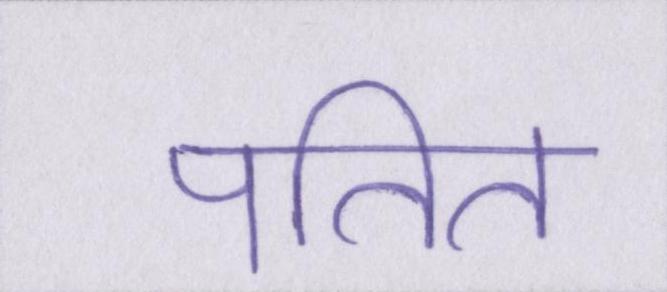 पतित